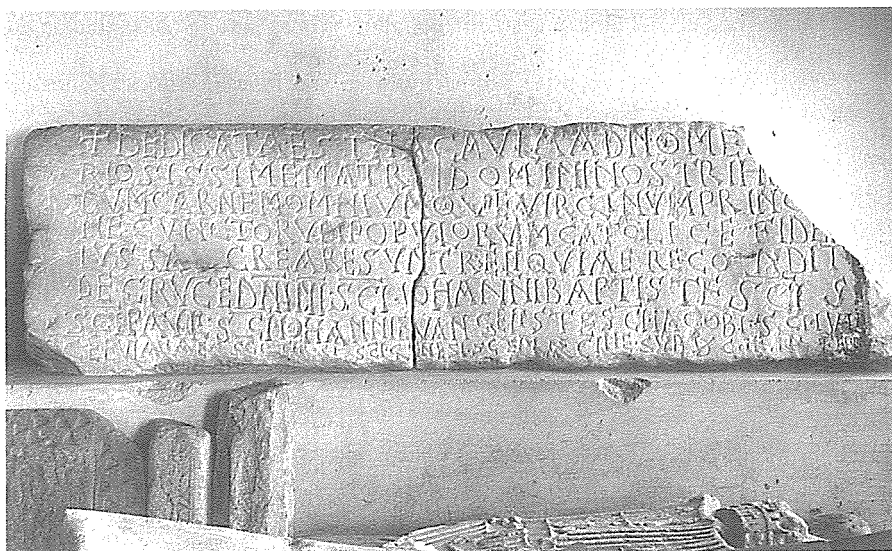 + DEDICATA EST AULA AD NOME
RIOSISSIME MATRI DOMINI NOSTRI IH
CUM CARNEM OMNIUMQUE VIRGINUM PRINC
NE CUNCTORUM POPULORUM CATOLICE FIDE
IUS SACRE ARE SUNT RELIQUIAE RECONDIT
DE CRUCE DNI NI SCI IOHANNI BAPTISTE SCI S
SCI PAULI SCI IOHANNI EVANGELISTE SCI IACOBI SCI IULI
SCI SCI GENESI SCE MARCILLE SUB D